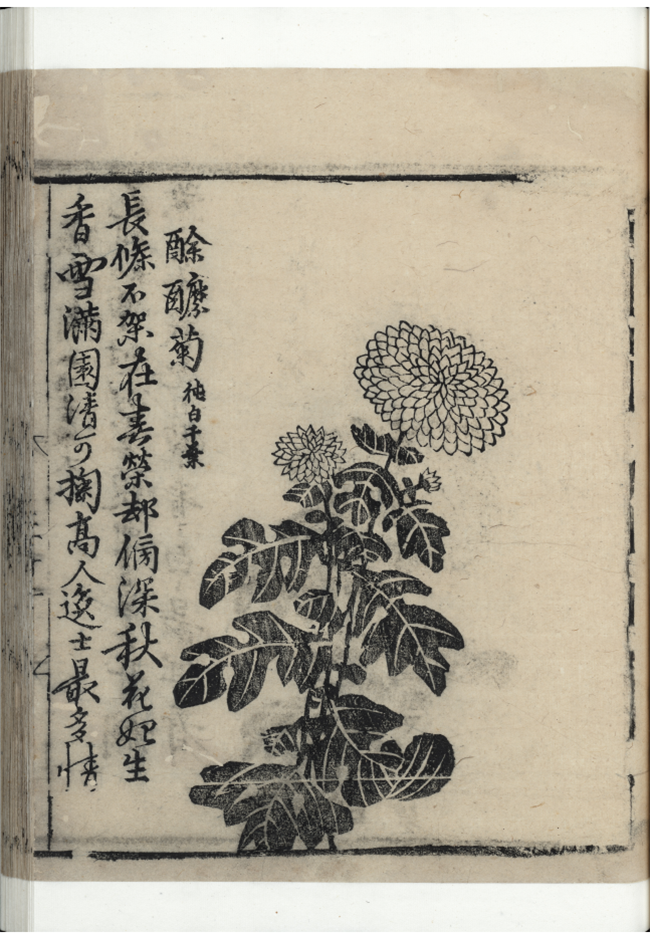 酴醾菊 純白千葉
長條不架在春榮却傍深秋花始生
香雪滿園清可掬高人逸士最多情